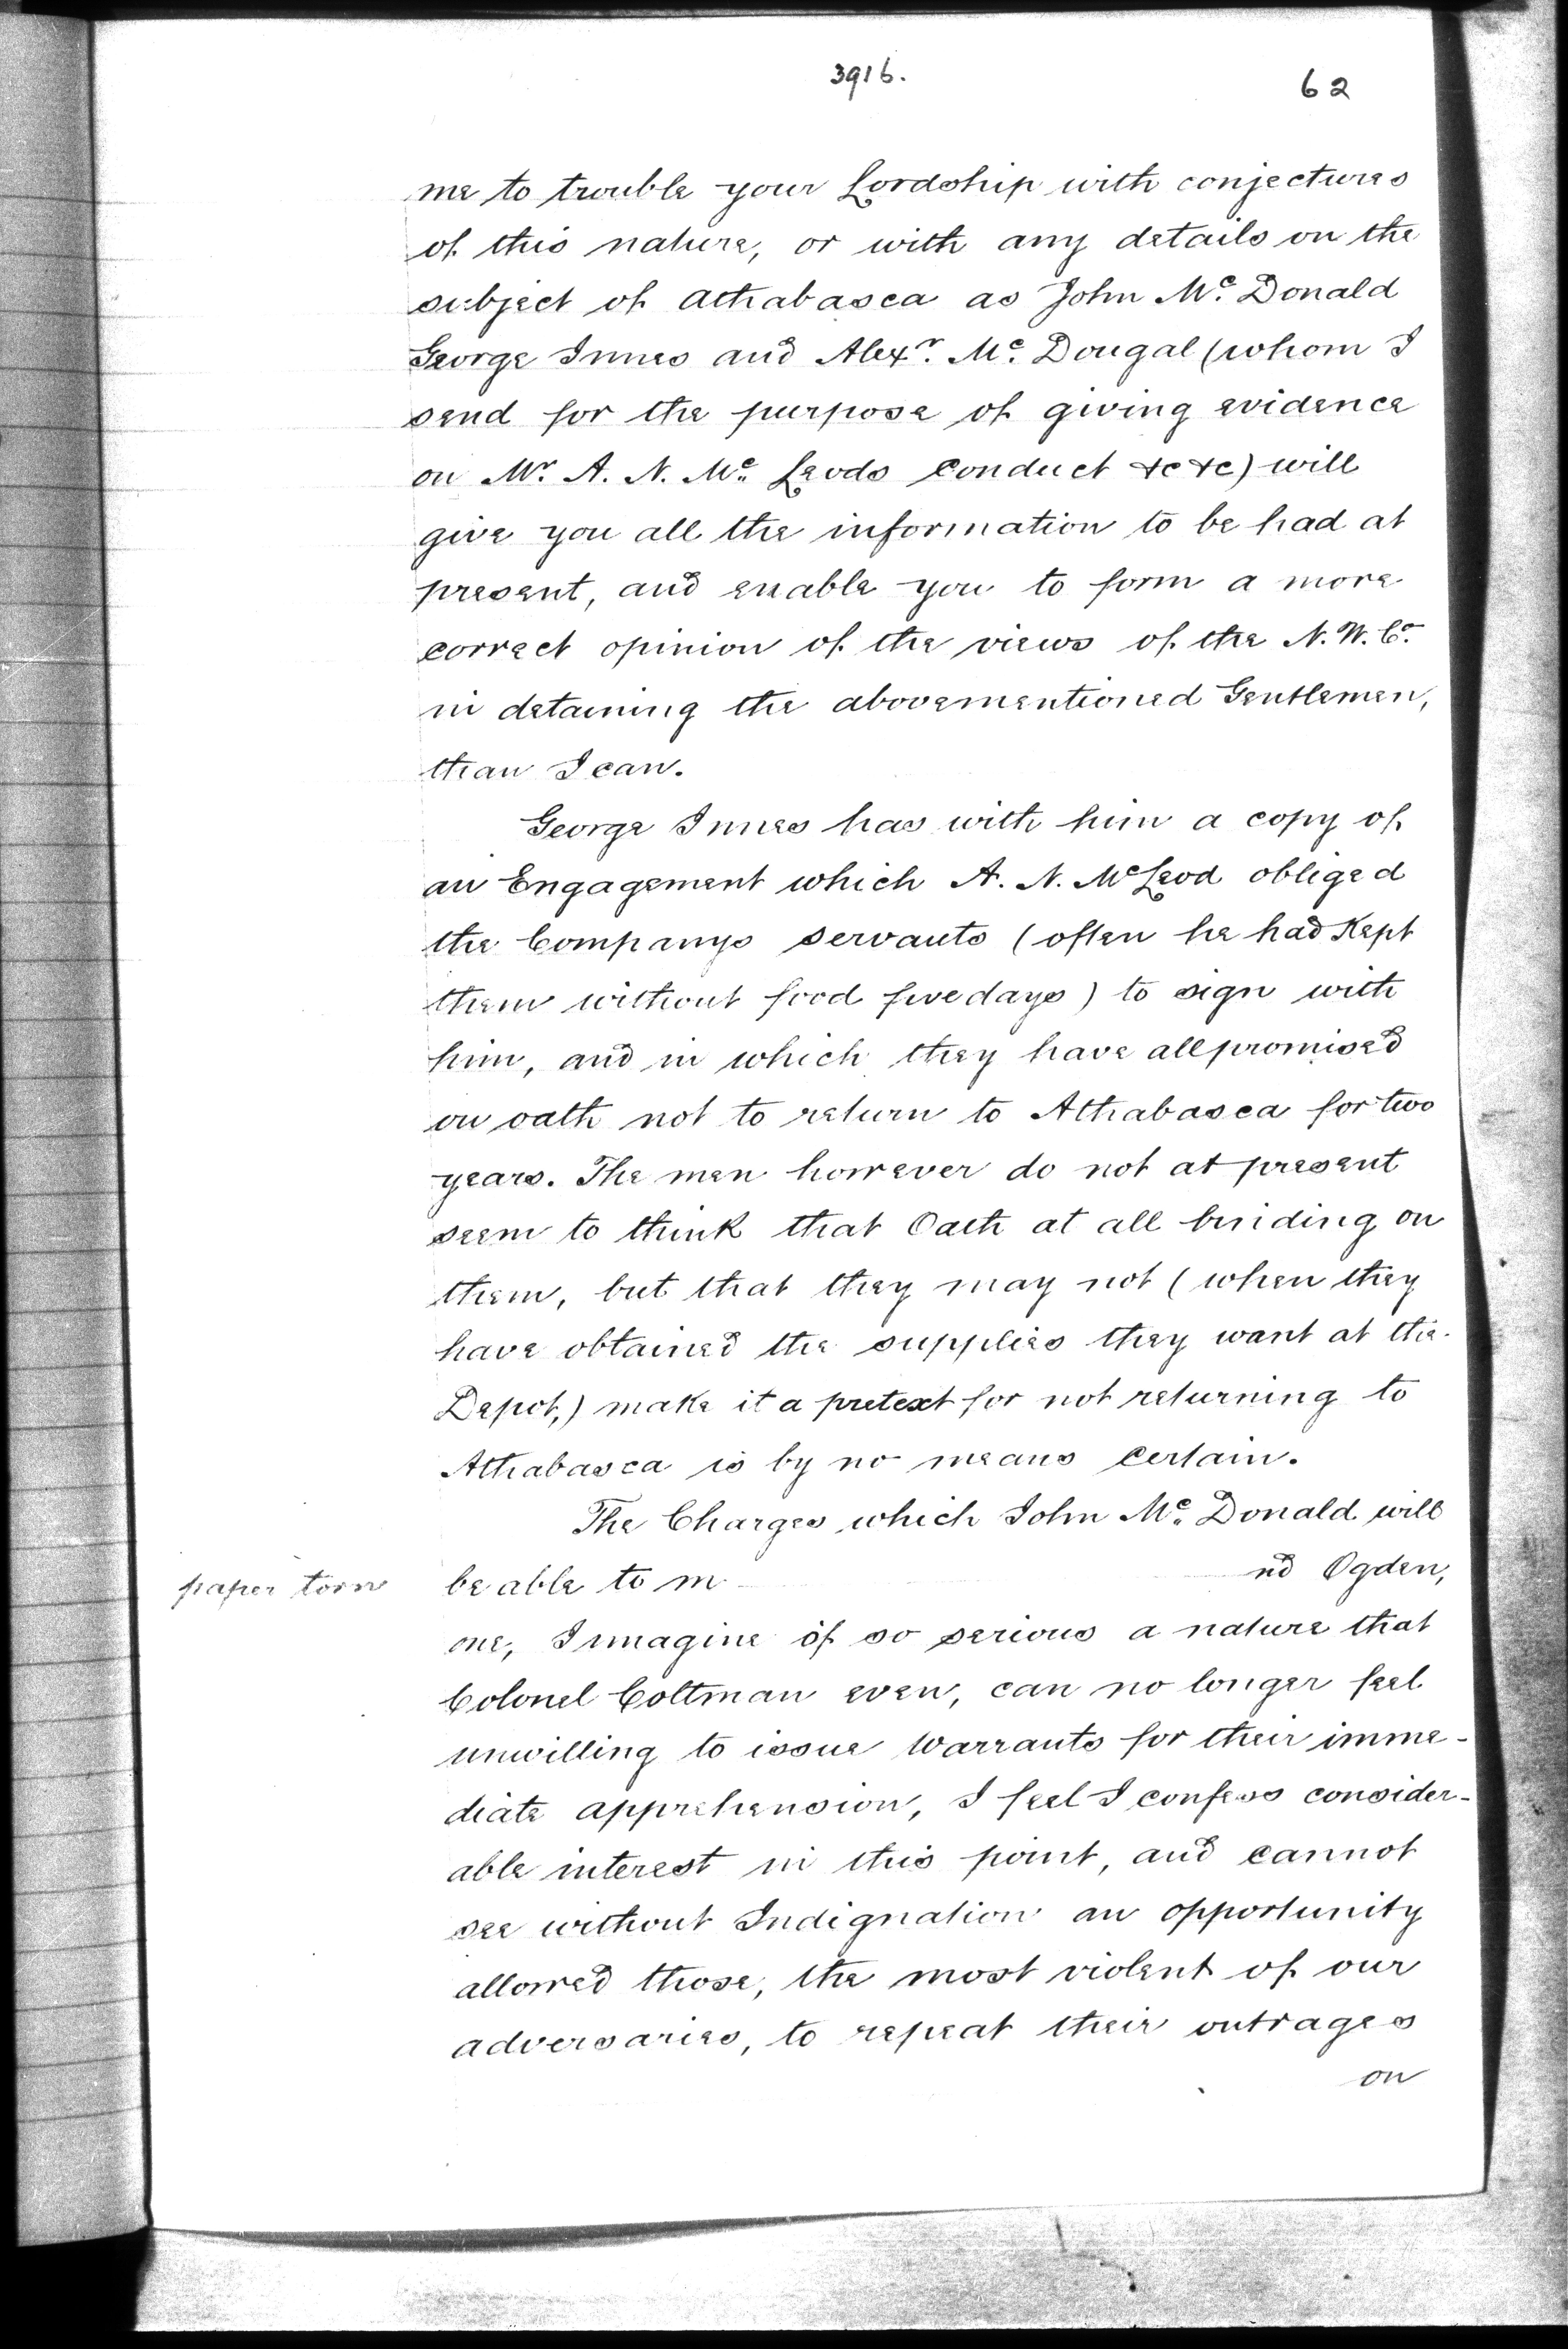 3916.
62
me to trouble your Lordship with conjectures
of this nature, or with any details on the
subject of Athabasca as John Mc. Donald
George Innes and Alexr. Mc. Dougal (whom I
send for the purpose of giving evidence
on Mr. A. N. Mc. Leods Conduct &c &c) will
give you all the information to be had at
present, and enable you to form a more
correct opinion of the views of the N. W. Co.
in detaining the abovementioned Gentlemen,
than I can.
George Innes has with him a copy of
an Engagement which A. N. McLeod obliged
the Companys servants (often he had Kept
them without food five days) to sign with
him, and in which they have all promised
on oath not to return to Athabasca for two
years. The men however do not at present
seem to think that Oath at all binding on
them, but that they may not (when they
have obtained the supplies they want at the
Depot,) make it a pretext for not returning to
Athabasca is by no means Certain.
The Charges which John Mc. Donald will
paper torn be able to m nd Ogden,
one, I imagine of so serious a nature that
Colonel Coltman even, can no longer feel
unwilling to issue Warrants for their imme-
diate apprehension, I feel I confess consider-
able interest in this point, and cannot
see without Indignation an opportunity
allowed those, the most violent of our
adversaries, to repeat their outrages
on